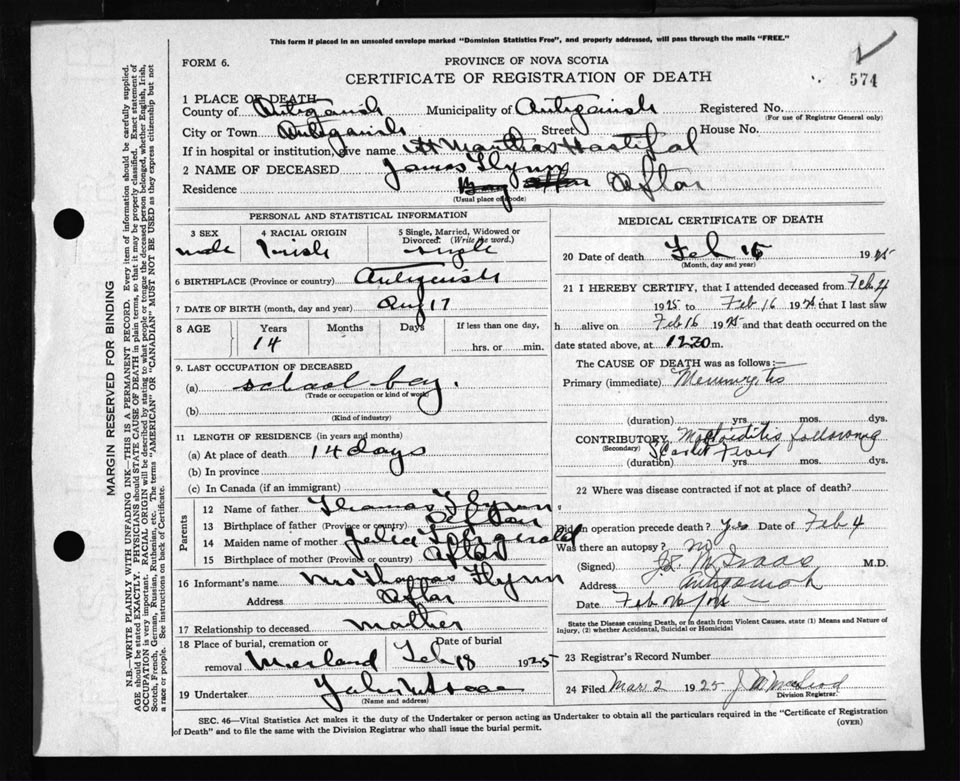 This form if placed in an unsealed envelope marked "Dominion Statistics Free", and properly addressed, will pass through the mails "FREE."
FORM 6.
PROVINCE OF NOVA SCOTIA
CERTIFICATE OF REGISTRATION OF DEATH
574
1 PLACE OF DEATH
County of Antigonish Municipality of Antigonish Registered No.
(For use of Registrar General only)
City or Town Antigonish Street House No.
If in hospital or institution, give name St Marthas Hospital
2 NAME OF DECEASED James Flynn
Residence Afton
(Usual place of abode)
PERSONAL AND STATISTICAL INFORMATION
3 SEX 4 RACIAL ORIGIN 5 Single, Married, Widowed or Divorced: (Write the word.)
male Irish single
6 BIRTHPLACE (Province or country) Antigonish
7 DATE OF BIRTH (month, day and year) Aug 17
8 AGE Years Months Days If less than one day,
14 hrs. or min.
9. LAST OCCUPATION OF DECEASED
(a) school boy.
(Trade or occupation or kind of work)
(b)
(Kind of industry)
11 LENGTH OF RESIDENCE (in years and months)
(a) At place of death 14 days
(b) In province
(c) In Canada (if an immigrant)
Parents
12 Name of father Thomas Flynn
13 Birthplace of father (Province or country) Afton
14 Maiden name of mother Fitzgerald
15 Birthplace of mother (Province or country) Afton
16 Informant's name Mrs Thomas Flynn
Address Afton
17 Relationship to deceased mother
18 Place of burial, cremation or removal Merland Date of burial Feb 18 1925
19 Undertaker
(Name and address)
MEDICAL CERTIFICATE OF DEATH
20 Date of death Feb 1925
(Month, day and year)
21 I HEREBY CERTIFY, that I attended deceased from Feb 4
1925 to Feb 16 192 that I last saw
h alive on Feb 16 1925 and that death occurred on
date stated above, at 1220 m.
The CAUSE OF DEATH was as follows:—
Primary (immediate) Meningitis
(duration) yrs. mos. dys.
CONTRIBUTORY, Mastoiditis following
(Secondary) Scarlet Fever
(duration) yrs. mos. dys.
22 Where was disease contracted if not at place of death?
Did an operation precede death? Yes Date of Feb 4
Was there an autopsy? no
(Signed) McIsaac M.D.
Address Antigonish
Date Feb
State the Disease causing Death, or in death from Violent Causes, state (1) Means and Nature of Injury, (2) whether Accidental, Suicidal or Homicidal
23 Registrar's Record Number
24 Filed Mar 2 1925 MacLeod
Division Registrar.
SEC. 46—Vital Statistics Act makes it the duty of the Undertaker or person acting as Undertaker to obtain all the particulars required in the "Certificate of Registration
of Death" and to file the same with the Division Registrar who shall issue the burial permit.
(OVER)
MARGIN RESERVED FOR BINDING
N.B.—WRITE PLAINLY WITH UNFADING INK—THIS IS A PERMANENT RECORD. Every item of information should be carefully supplied.
AGE should be stated EXACTLY. PHYSICIANS should STATE CAUSE OF DEATH in plain terms, so that it may be properly classified. Exact statement of
OCCUPATION is very important. RACIAL ORIGIN will be described by stating to what people or tongue the deceased person belonged, whether English, Irish,
Scotch, French, German, Russian, Ruthenian, etc. The terms "AMERICAN" OR "CANADIAN" MUST NOT BE USED as they express citizenship but not
a race or people. See instructions on back of Certificate.